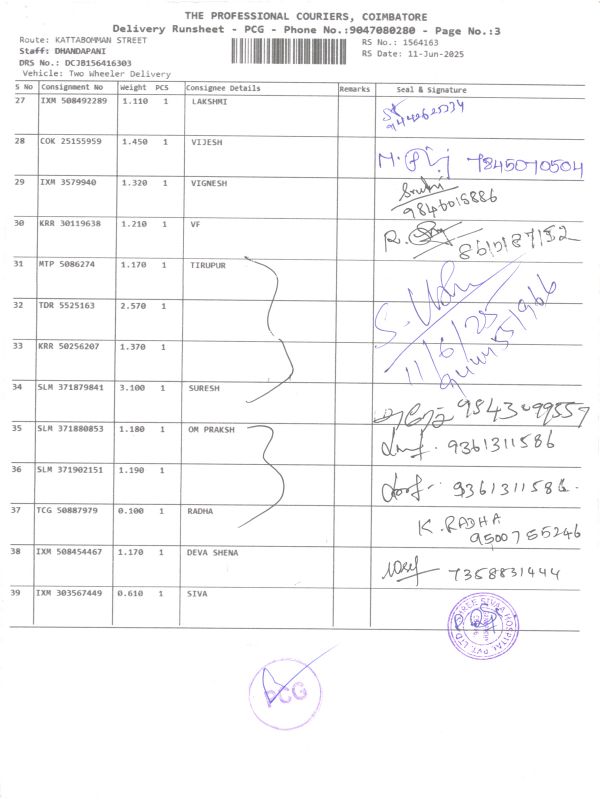 THE PROFESSIONAL COURIERS, COIMBATORE
Delivery Runsheet - PCG - Phone No.:9047080280 - Page No.:3
Route: KATTABOMMAN STREET
RS No.: 1564163
Staff: DHANDAPANI
RS Date: 11-Jun-2025
DRS No.: DCJB156416303
Vehicle: Two Wheeler Delivery
S No Consignment No Weight PCS Consignee Details Remarks Seal & Signature
27 IXM 508492289 1.110 1 LAKSHMI
28 COK 25155959 1.450 1 VIJESH 7845070504
29 IXM 3579940 1.320 1 VIGNESH
9846015886
30 KRR 30119638 1.210 1 VF
31 MTP 5086274 1.170 1 TIRUPUR
32 TDR 5525163 2.570 1
11/6/25
33 KRR 50256207 1.370 1
34 SLM 371879841 3.100 1 SURESH 9843099557
35 SLM 371880853 1.180 1 OM PRAKSH 9361311586
36 SLM 371902151 1.190 1 9361311586
37 TCG 50887979 0.100 1 RADHA K. RADHA
9500755246
38 IXM 508454467 1.170 1 DEVA SHENA 7358831444
39 IXM 303567449 0.610 1 SIVA
SHREE SIVAA HOSPITAL PVT. LTD
PCG